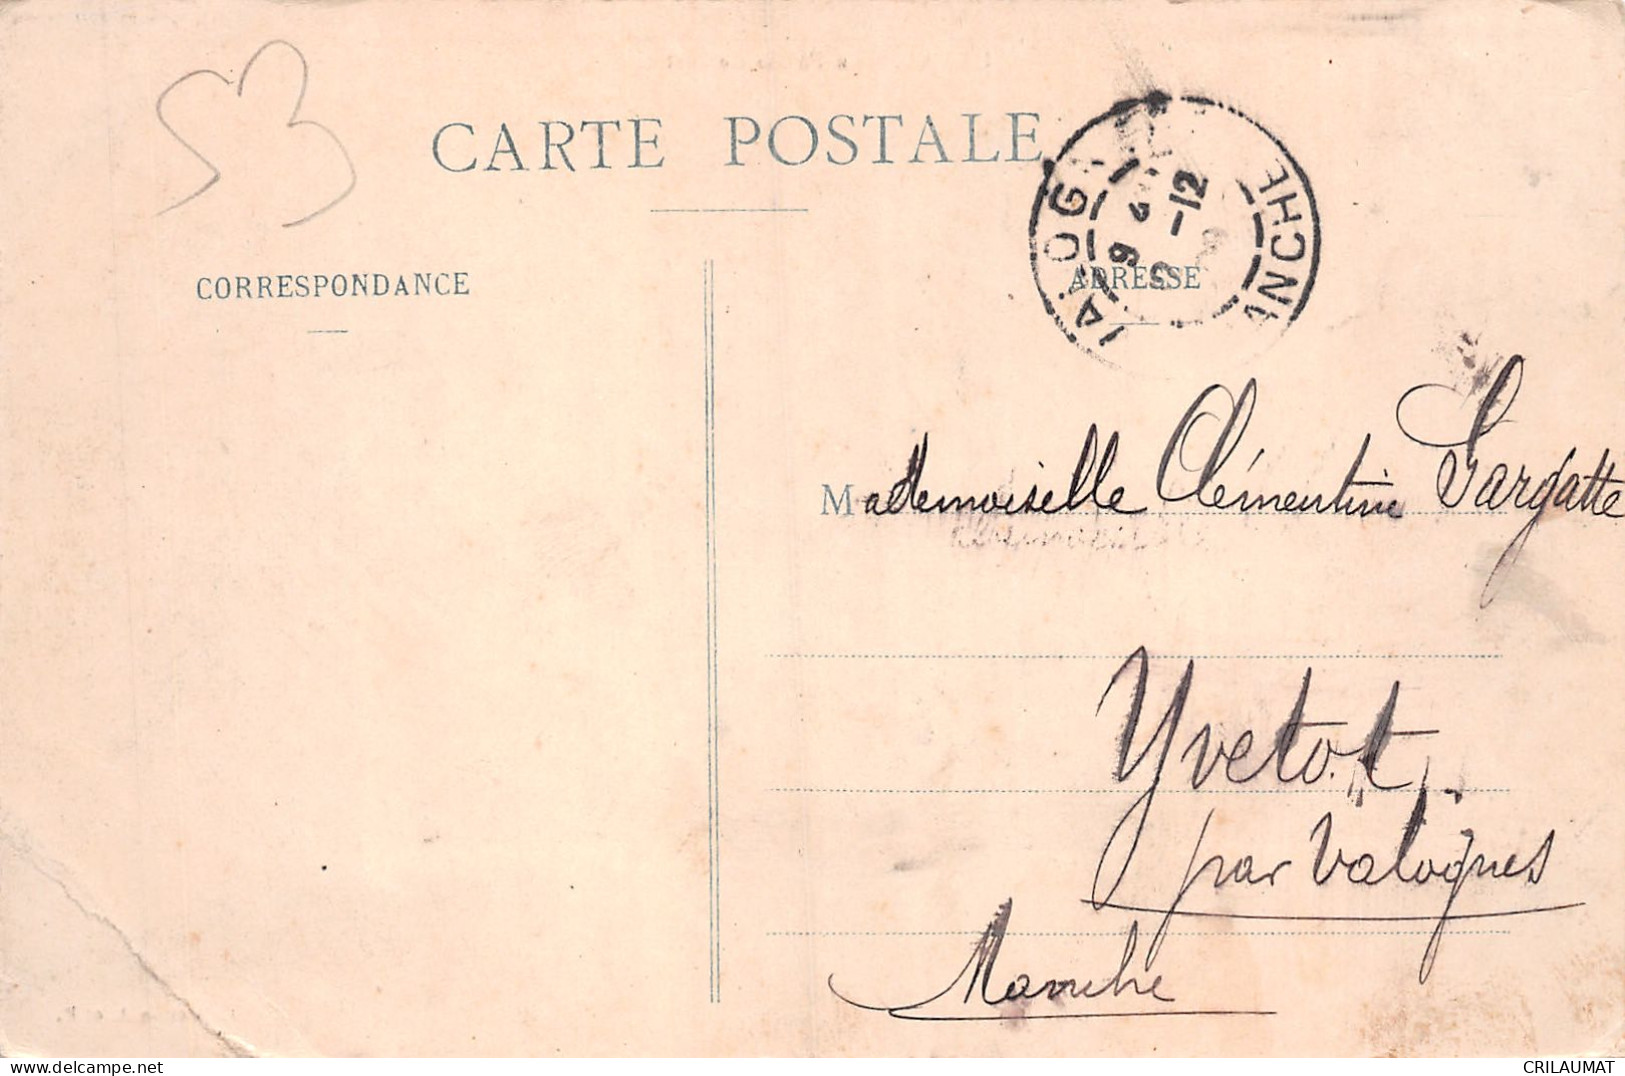 53
CARTE POSTALE
CORRESPONDANCE
ADRESSE
MANCHE
9
-12
Mademoiselle Clémentine Gargatte
Yvetot
par Valognes
Manche
CRILAUMAT